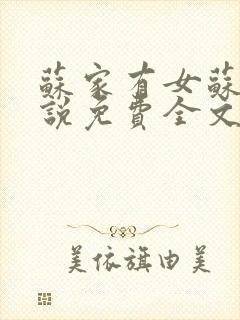 蘇家有女蘇
說免費全文
美依旗由美